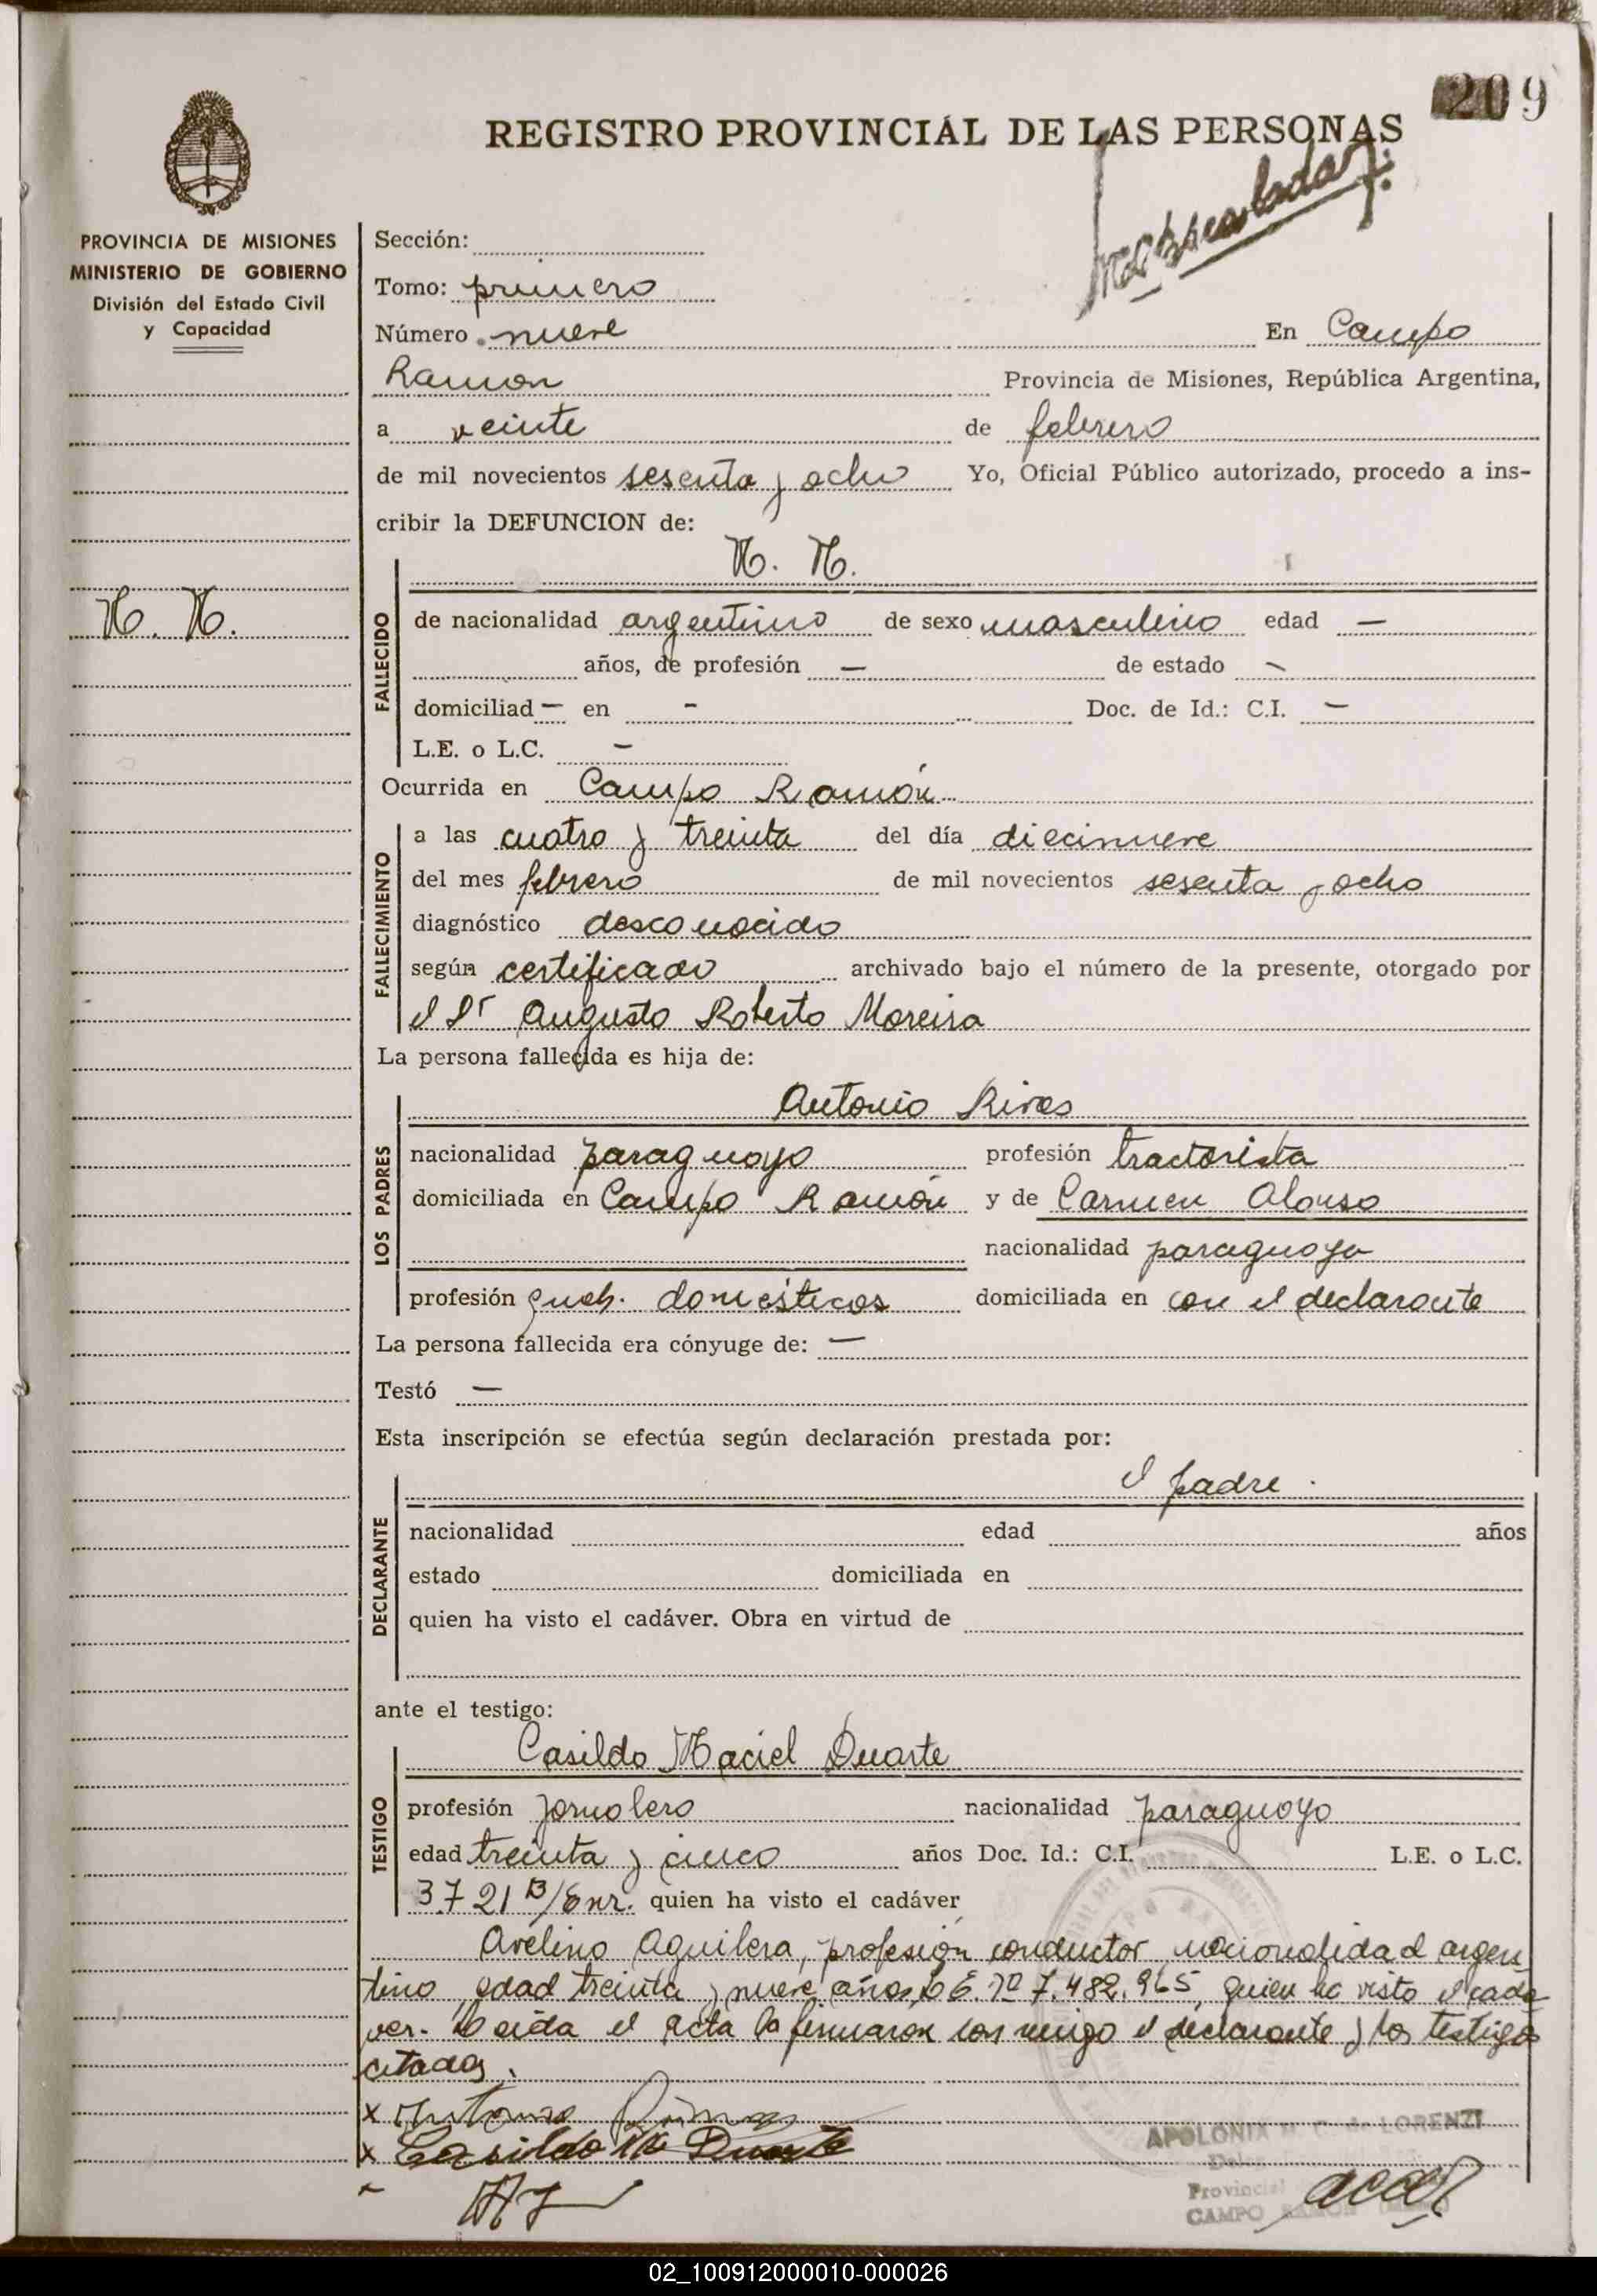 209
REGISTRO PROVINCIAL DE LAS PERSONAS
PROVINCIA DE MISIONES
MINISTERIO DE GOBIERNO
División del Estado Civil
y Capacidad
Sección:
Tomo: primero
Número nueve En Campo
Ramon Provincia de Misiones, República Argentina,
a veinte de febrero
de mil novecientos sesenta y ocho Yo, Oficial Público autorizado, procedo a ins-
cribir la DEFUNCION de:
N. N.
N. N.
FALLECIDO
de nacionalidad argentino de sexo masculino edad —
años, de profesión — de estado —
domiciliad — en - Doc. de Id.: C.I. —
L.E. o L.C. —
Ocurrida en Campo Ramón
FALLECIMIENTO
a las cuatro y treinta del día diecinueve
del mes febrero de mil novecientos sesenta y ocho
diagnóstico desconocido
según certificado archivado bajo el número de la presente, otorgado por
el Dr Augusto Roberto Moreira
La persona fallecida es hija de:
LOS PADRES
Antonio Rivas
nacionalidad paraguayo profesión tractorista
domiciliada en Campo Ramón y de Carmen Alonso
nacionalidad paraguaya
profesión queh. domésticos domiciliada en con el declarante
La persona fallecida era cónyuge de: —
Testó —
Esta inscripción se efectúa según declaración prestada por:
DECLARANTE
el padre.
nacionalidad edad años
estado domiciliada en
quien ha visto el cadáver. Obra en virtud de
ante el testigo:
TESTIGO
Casildo Maciel Duarte
profesión jornalero nacionalidad paraguayo
edad treinta y cinco años Doc. Id.: C.I. L.E. o L.C.
3721 B/Enr. quien ha visto el cadáver
Avelino Aguilera, profesión conductor nacionalidad argen
tino, edad treinta y nueve años, nº 7.482.965, quien ha visto el cada
ver. Leida el acta la firmaron conmigo el declarante y los testigos
citados.
x Antonio
x Casildo Ma Duarte
APOLONIA M. C. de LORENZI
Provincial
CAMPO RAMON
02_100912000010-000026